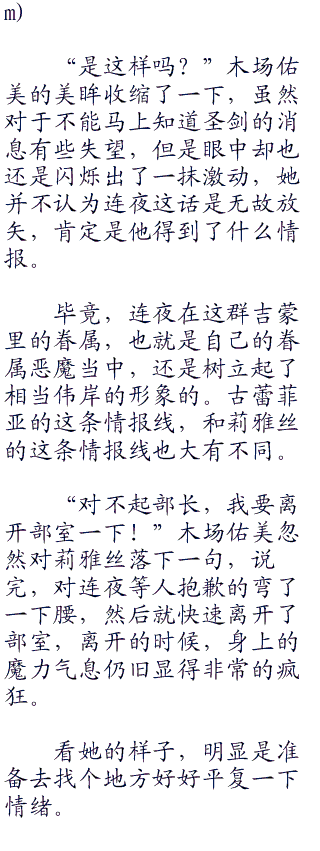 m)
“是这样吗？”木场佑
美的美眸收缩了一下，虽然
对于不能马上知道圣剑的消
息有些失望，但是眼中却也
还是闪烁出了一抹激动，她
并不认为连夜这话是无故放
矢，肯定是他得到了什么情
报。
毕竟，连夜在这群吉蒙
里的眷属，也就是自己的眷
属恶魔当中，还是树立起了
相当伟岸的形象的。古蕾菲
亚的这条情报线，和莉雅丝
的这条情报线也大有不同。
“对不起部长，我要离
开部室一下！”木场佑美忽
然对莉雅丝落下一句，说
完，对连夜等人抱歉的弯了
一下腰，然后就快速离开了
部室，离开的时候，身上的
魔力气息仍旧显得非常的疯
狂。
看她的样子，明显是准
备去找个地方好好平复一下
情绪。